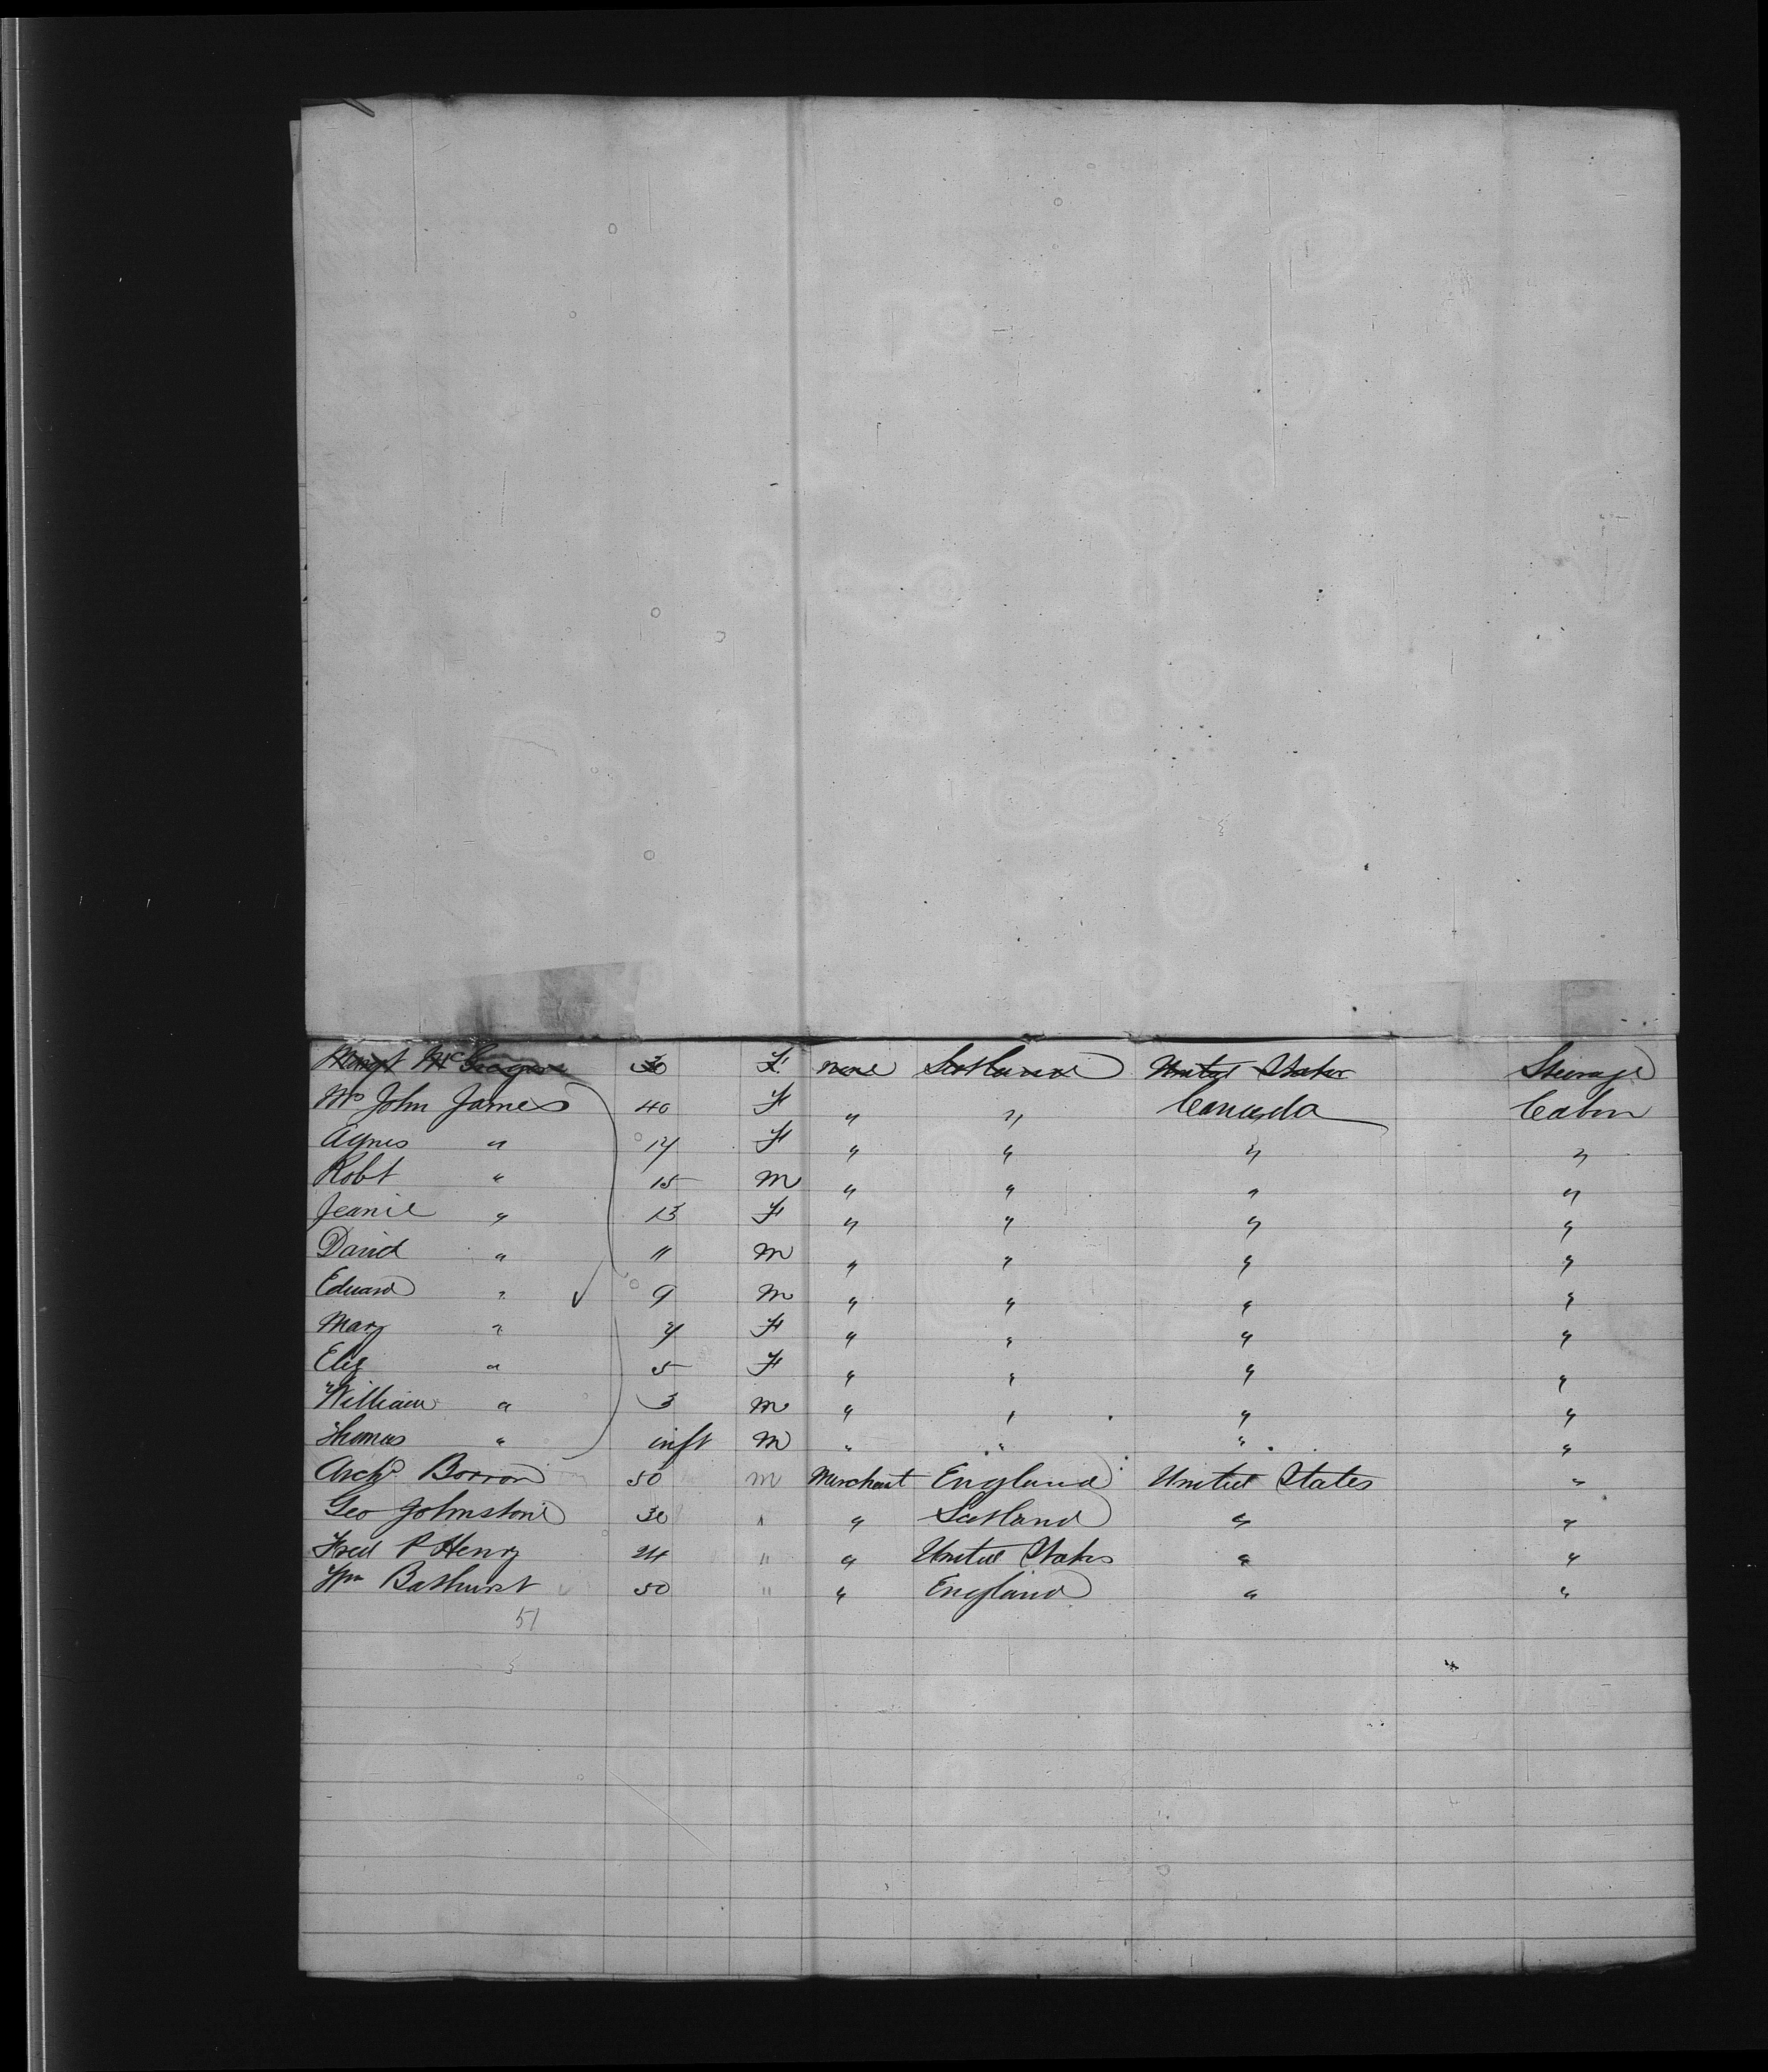 Margt McGregor 30 F. none Scotland United States Steerage
Mrs John James 40 F " " Canada Cabin
Agnes " 17 F " " " "
Robt " 15 M " " " "
Jeanie " 13 F " " " "
David " 11 M " " " "
Edward " 9 M " " " "
Mary " 7 F " " " "
Eliz " 5 F " " " "
William " 3 M " " " "
Thomas " inft M " " " "
Archd Borron 50 M Merchant England United States "
Geo Johnstone 30 " " Scotland " "
Fred P Henry 24 " " United States " "
Wm Bathurst 50 " " England " "
51